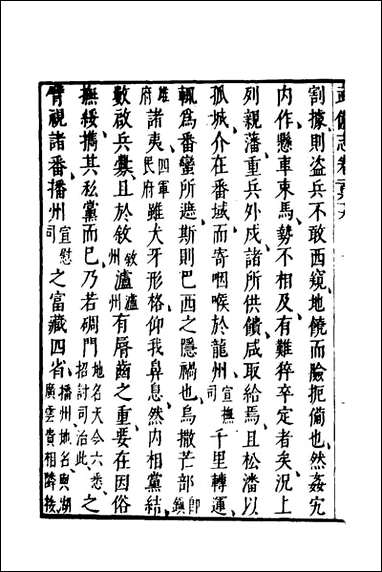 割據則盜兵不敢西窺、地饒而險扼僃也然姦宄
內作懸車束馬、勢不相及、有難猝卒定者矣況上
列親藩、重兵外戍、諸所供饋、咸取給焉、且松潘以
孤城、介在番域、而寄咽喉於龍州宣撫司千里轉運、
輒為番蠻所遮、斯則巴西之隱禍也、烏撒芒部即鎮
雄府諸夷四軍民府雖犬牙形格、仰我鼻息、然內相黨結、
數啟兵釁、且於敘瀘敘州瀘州有脣齒之重、要在因俗
撫綏、攜其私黨而已、乃若碉門地名天今六悉、招討司治此、之
臂視諸番、播州宣慰司之富藏四省、播州地名與湖廣雲貴相鄰接、